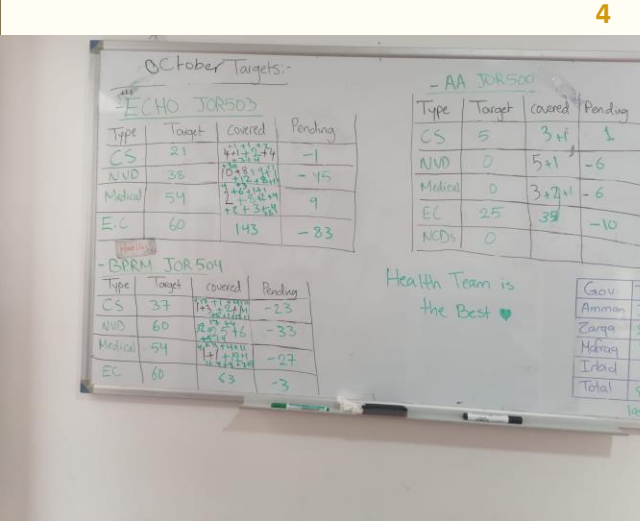 4
October Targets:-
- ECHO JOR503
Type Target covered Pending
CS 21 -1
NVD 38 -45
Medical 54 9
E.C 60 143 -83
- BPRM JOR504
Type Target covered Pending
CS 37 -23
NVD 60 -33
Medical 54 -27
EC 60 63 -3
- AA JOR500
Type Target covered Pending
CS 5 3+1 1
NVD 0 5+1 -6
Medical 0 3+2+1 -6
EC 25 35 -10
NCDs 0
Health Team is
the Best ♥
Gov
Amman
Zarqa
Mafraq
Irbid
Total